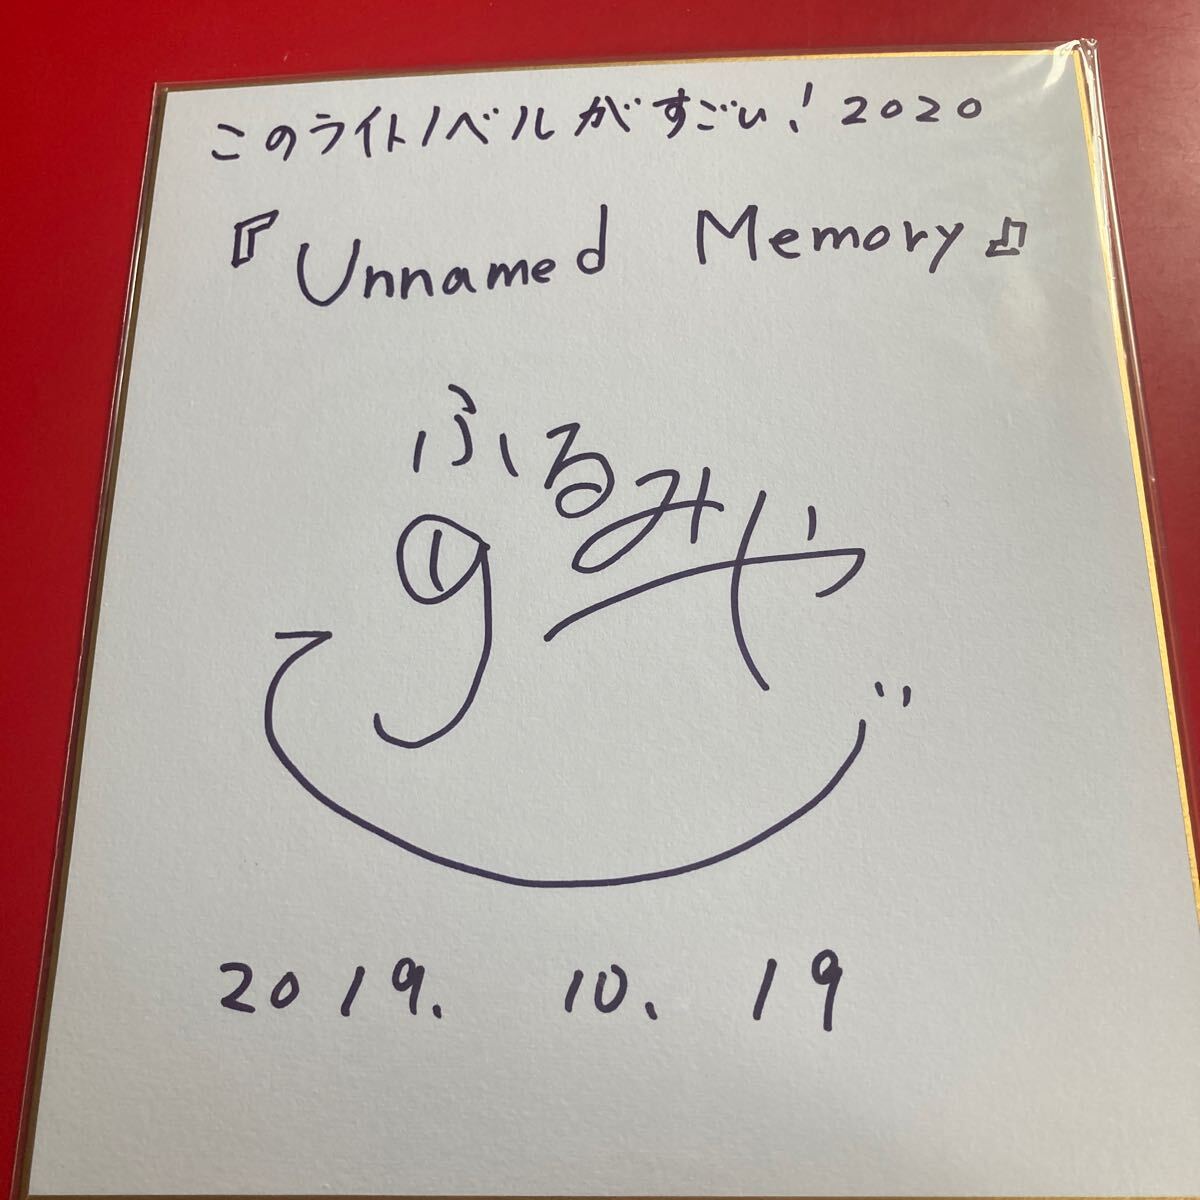 このライトノベルがすごい!2020
『Unnamed Memory』
ふるみや
2019. 10. 19